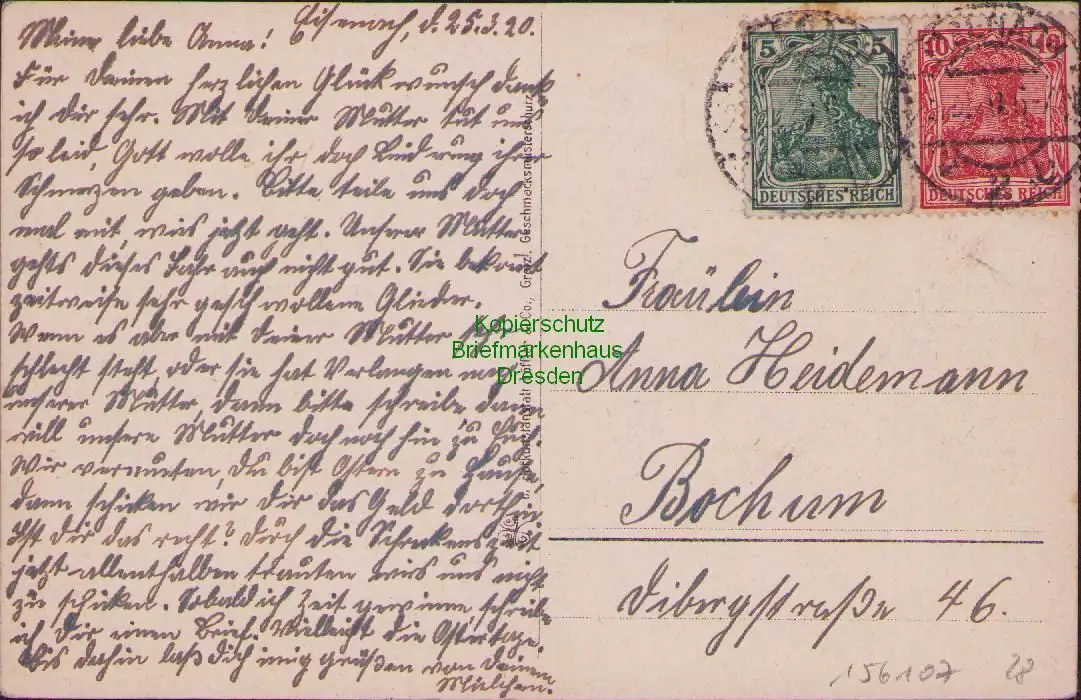 Eisenach, d. 25.3.20.
Meine liebe Anna!
Für Deinen herzlichen Glückwunsch danke
ich dir sehr. Mit Deiner Mutter tut uns
so leid, Gott wolle ihr doch Linderung ihrer
Schmerzen geben. Bitte teile uns doch
mal mit, wies jetzt geht. Unserer Mutter
gehts dieses Jahr auch nicht gut. Sie bekommt
zeitweise sehr geschwollene Glieder.
Wenn es aber mit Deiner Mutter sehr
schlecht steht, oder sie hat Verlangen nach
unserer Mutter, dann bitte schreibe dann
will unsere Mutter doch noch hin zu Euch.
Wir vermuten, Du bist Ostern zu Hause,
dann schicken wir Dir das Geld dorthin
Ist Dir das recht? Durch die Schreckenszeit
jetzt allenthalben trauten wirs uns nicht
zu schicken. Sobald ich Zeit gewinne, schreibe
ich Dir einen Brief. Vielleicht die Ostertage.
Bis dahin laß Dich innig grüßen von Deinem
Mielchen.
Co., Greiz. Geschmacksmusterschutz
5 5
DEUTSCHES REICH
10 10
DEUTSCHES REICH
Fräulein
Anna Heidemann
Bochum
Dibergstraße 46.
Kopierschutz
Briefmarkenhaus
Dresden
156107 28